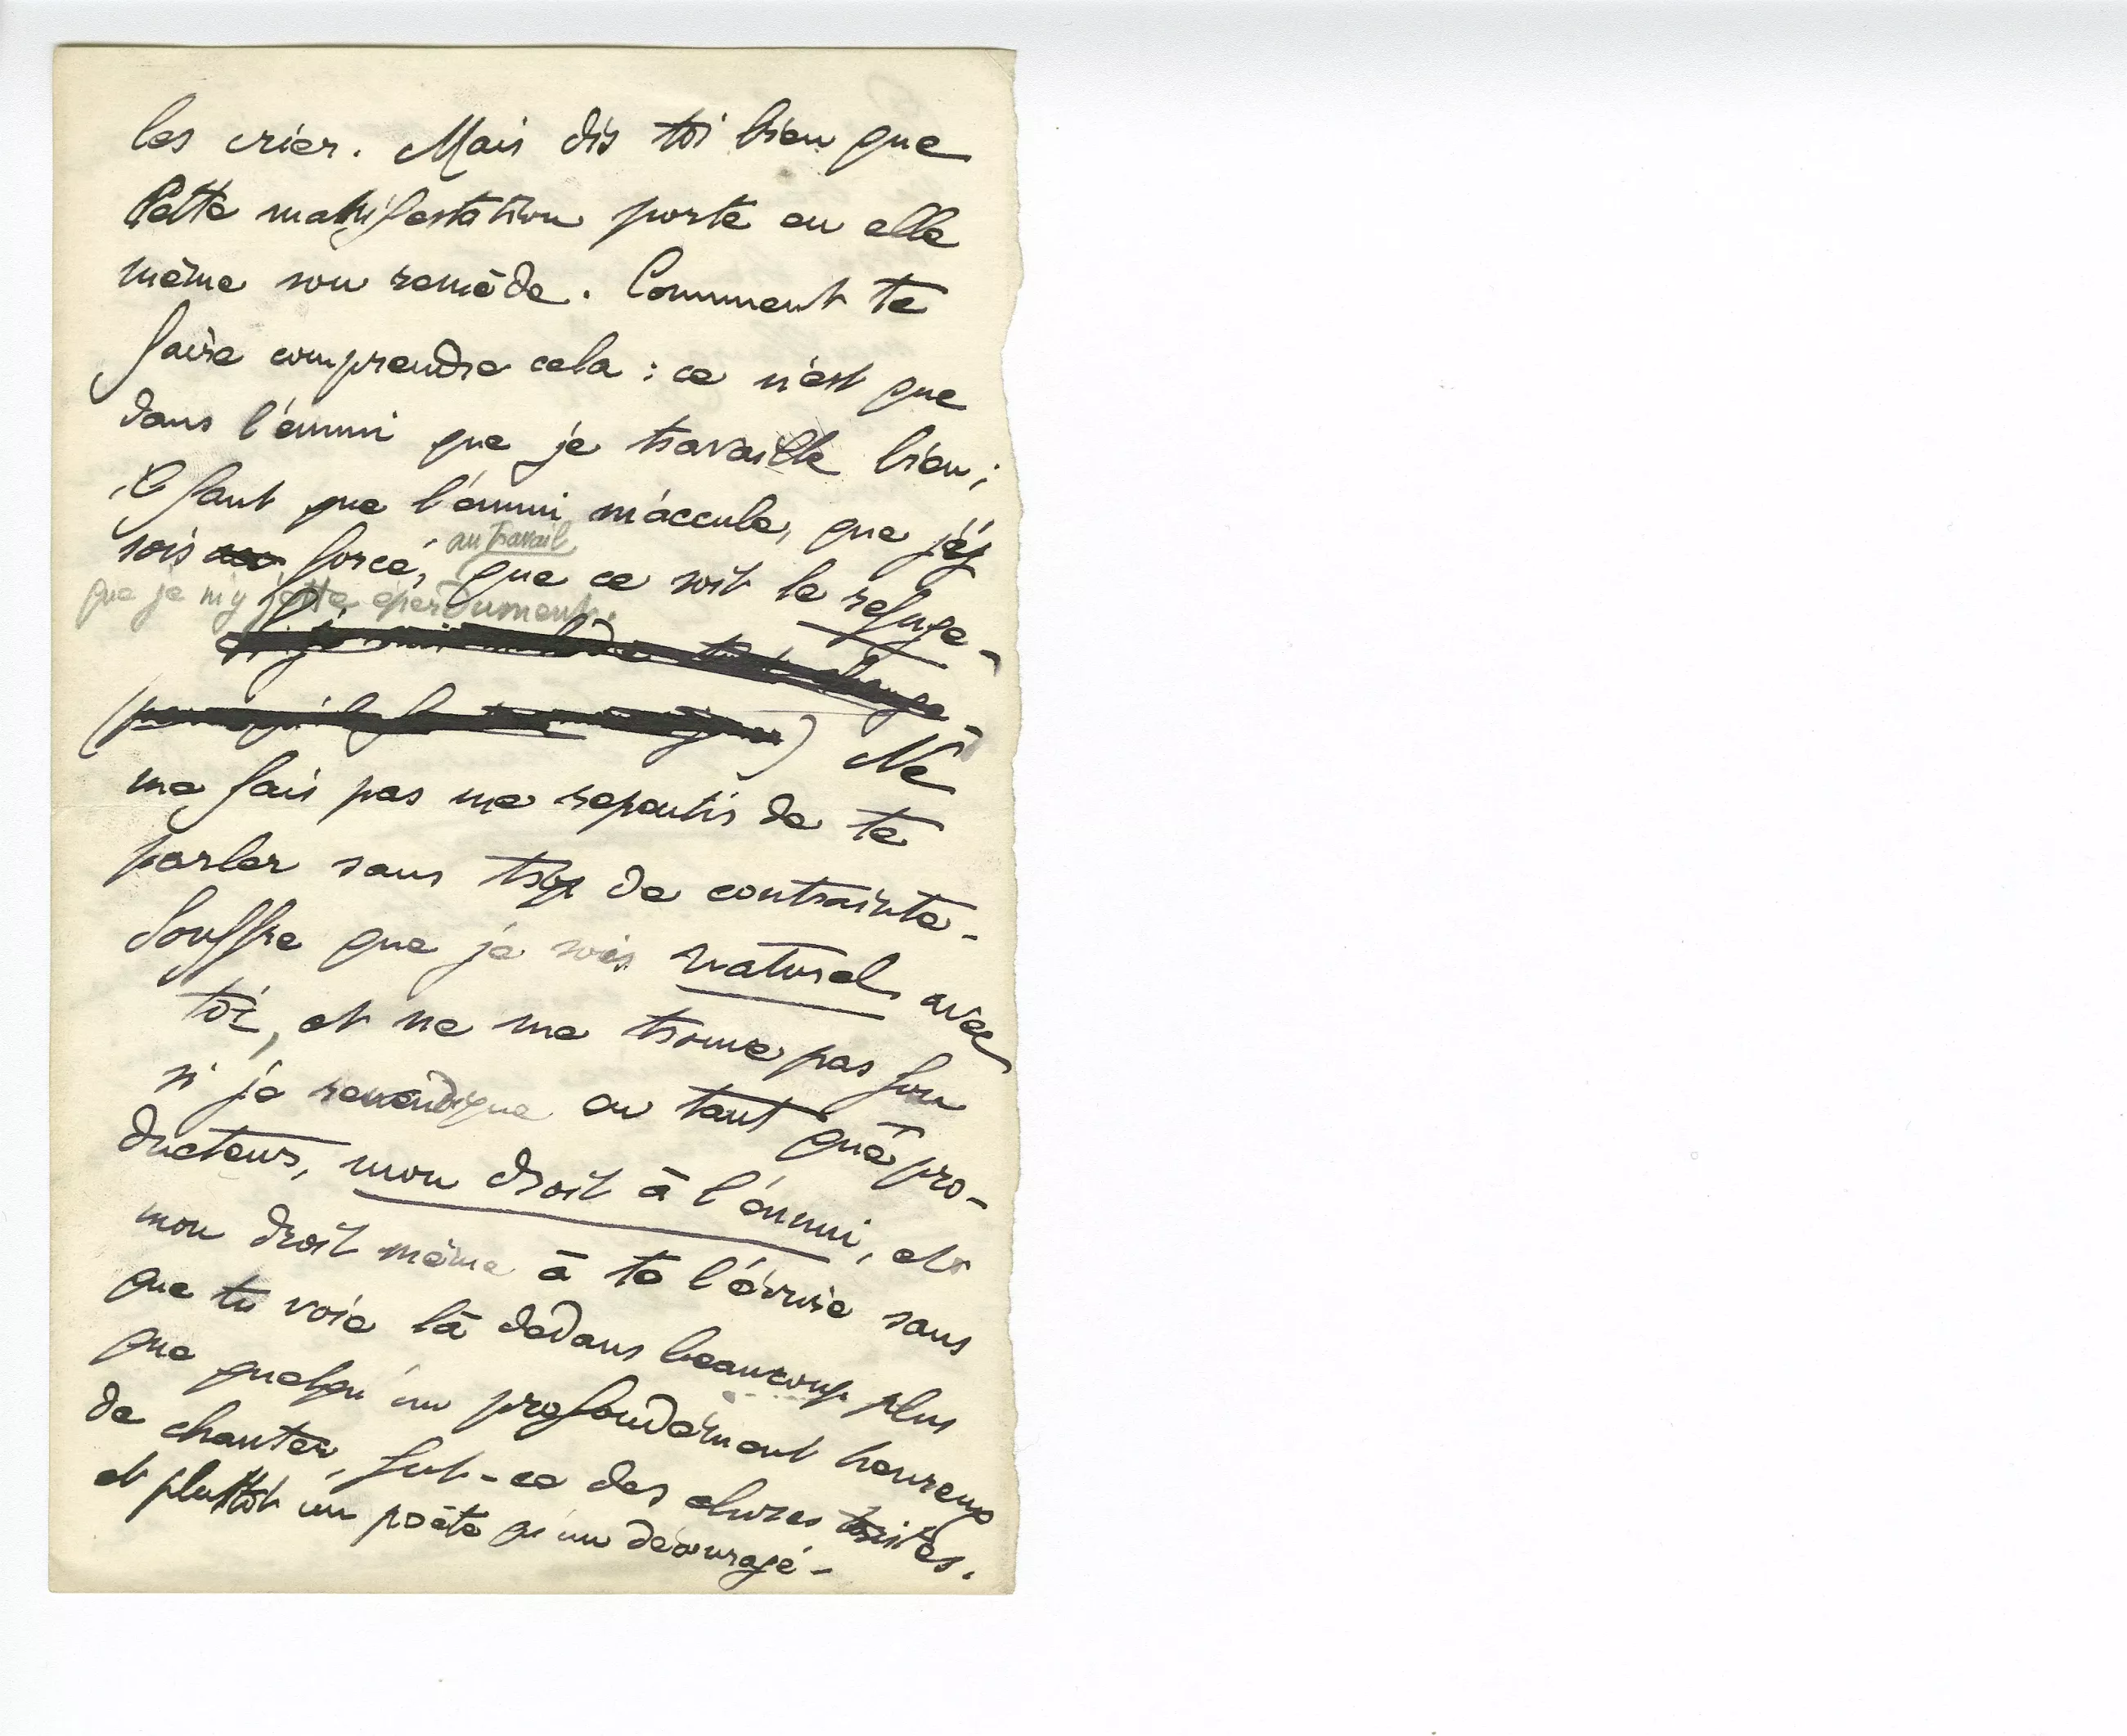 les crier. Mais dis toi bien que
cette manifestation porte en elle
même son remède. Comment te
faire comprendre cela : ce n'est que
dans l'ennui que je travaille bien ;
il faut que l'ennui m'accule, que j'y
sois forcé, au travail que ce soit le refuge -
que je m'y jette éperdument.
Ne
me fais pas me repentir de te
parler sans trop de contrainte -
Souffre que je sois naturel avec
toi, et ne me trouve pas fou
si je revendique en tant que pro-
ducteur, mon droit à l'ennui, et
mon droit même à te l'écrire sans
que tu voie là dedans beaucoup plus
que quelqu'un profondément heureux
de chanter, fut-ce des choses tristes.
et plutôt un poète qu'un découragé -